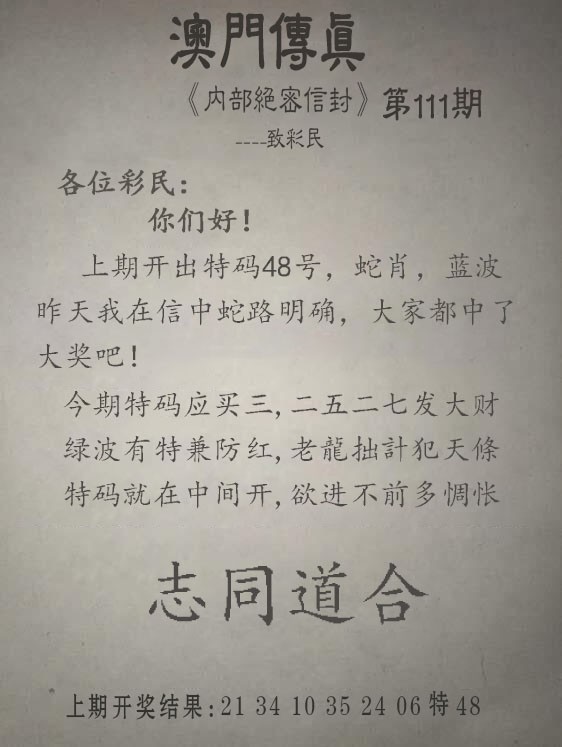 澳門傳真
《内部絕密信封》第111期
----致彩民
各位彩民：
你们好！
上期开出特码48号，蛇肖，蓝波
昨天我在信中蛇路明确，大家都中了
大奖吧！
今期特码应买三,二五二七发大财
绿波有特兼防红,老龍拙計犯天條
特码就在中间开,欲进不前多惆怅
志同道合
上期开奖结果:21 34 10 35 24 06特48